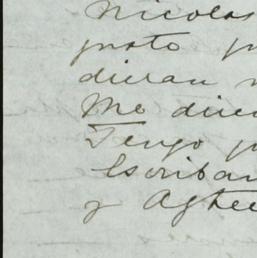 Nicolas
gusto p
dieran
Me dice
Tengo p
Escriban
y Agte